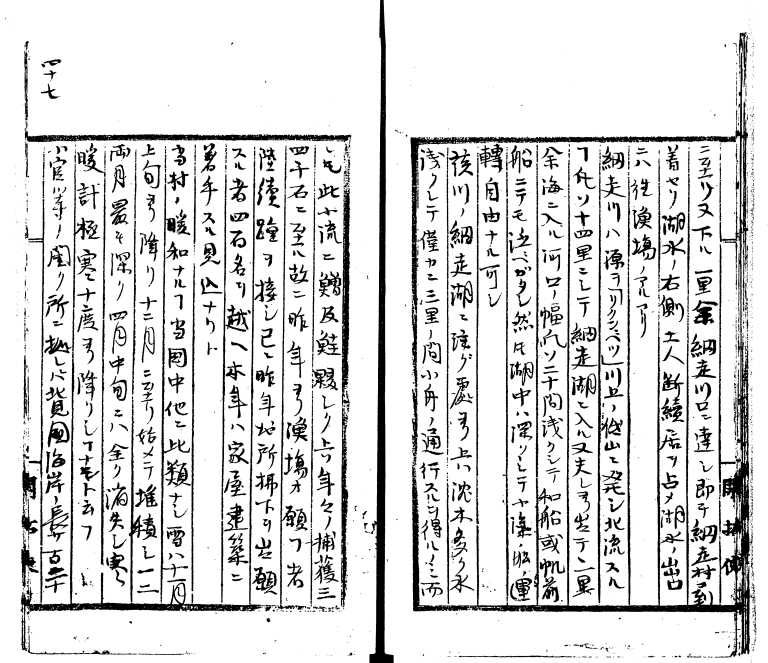 ニ至リ又下ル一里余網走川口ニ達シ即チ網走村ニ到
着セリ湖水ノ右側土人断続居ヲ占メ湖水ノ出口
ニハ往漁場ノアルアリ
網走川ハ源ヲクンベツ川上ノ低山ニ発シ北流スル
凡ソ十四里ニシテ網走湖ニ入ル又夫レヨリ出テ二里
余海ニ入ル河口ノ幅凡ソ二十間浅クシテ和船或帆前
船ニテモ泛ベガタシ然モ湖中ハ深クシテ船ノ運
轉自由ナル可シ
該川ノ網走湖ニ注グ処ヨリ上ハ沈木多ク水
浅クシテ僅カニ三里ノ間小舟ノ通行スルヲ得ルノミ而
シモ此小流ニ鱒及鮭夥シク上リ年々ノ捕獲三
四千石ニ至ル故ニ昨年ヨリ漁場ヲ願フ者
陸続踵ヲ接シ已ニ昨年地所拂下ヲ出願
スル者四百名ヲ越ヘ本年ハ家屋建築ニ
着手スル見込ナリト
当村ノ暖和ナルヿ当国中他ニ比類ナシ雪ハ十一月
上旬ヨリ降リ十二月ニ至リ始メテ堆積シ一二
両月最モ深ク四月中旬ニハ全ク消失シ寒
暖計極寒ニ十度ヨリ降リシヿナシト云フ
小官等ノ聞ク所ニ拠レバ北見国海岸ノ長サ百二十
四十七